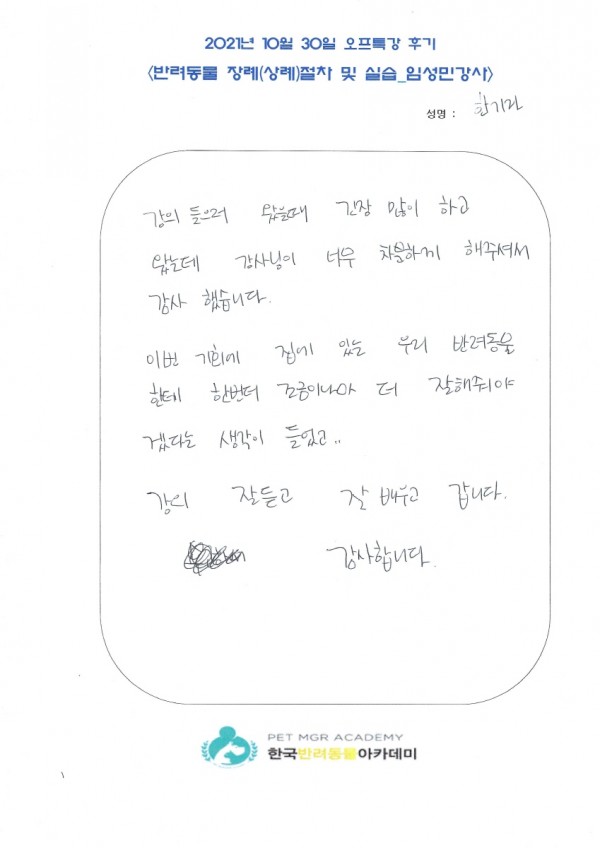 2021년 10월 30일 오프특강 후기
<반려동물 장례(상례)절차 및 실습_임성민강사>
성명 : 한기라
강의 들으러 왔을때 긴장 많이 하고
왔는데 강사님이 너무 차분하게 해주셔서
감사 했습니다.
이번 기회에 집에 있는 우리 반려동물
한테 한번더 조금이나마 더 잘해줘야
겠다는 생각이 들었고..
강의 잘듣고 잘 배우고 갑니다.
감사합니다.
PET MGR ACADEMY
한국반려동물아카데미